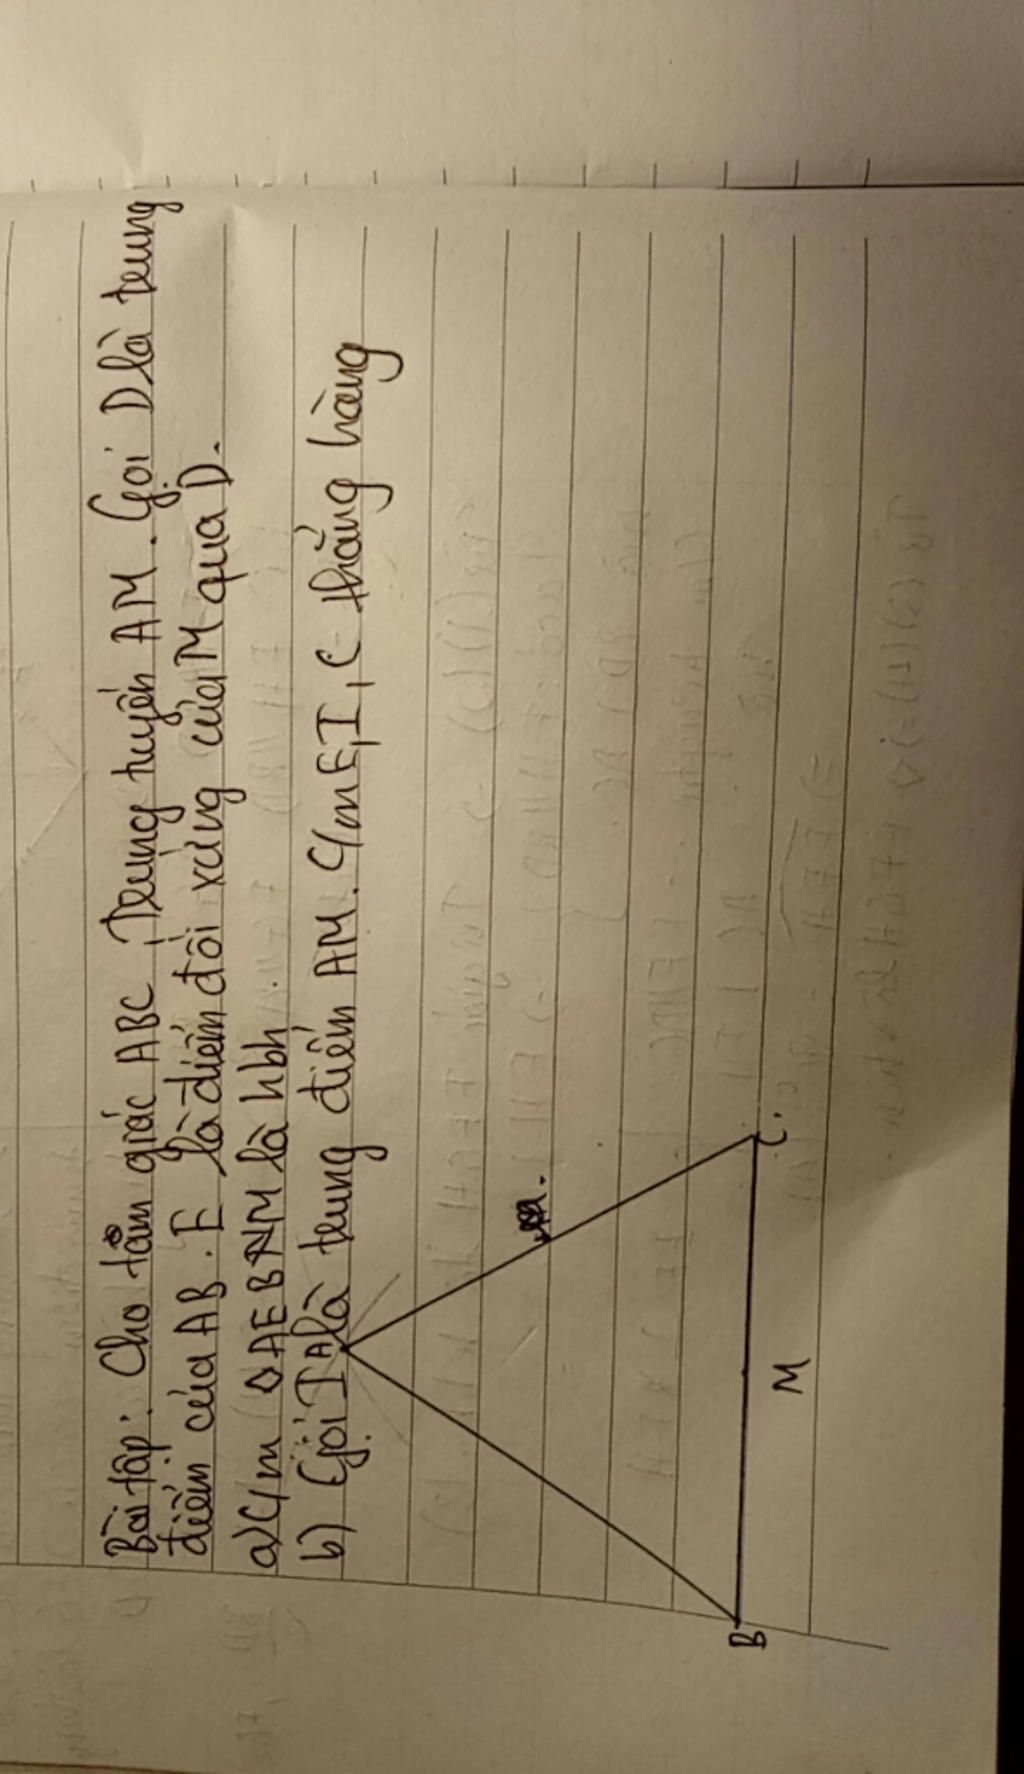 Bài tập: Cho tam giác ABC, Trung tuyến AM. Gọi D là trung
điểm của AB. E là điểm đối xứng của M qua D.
a) C/m ◊AEBM là hbh
b) Gọi I là trung điểm AM. C/m E, I, C thẳng hàng
A
B
M
C